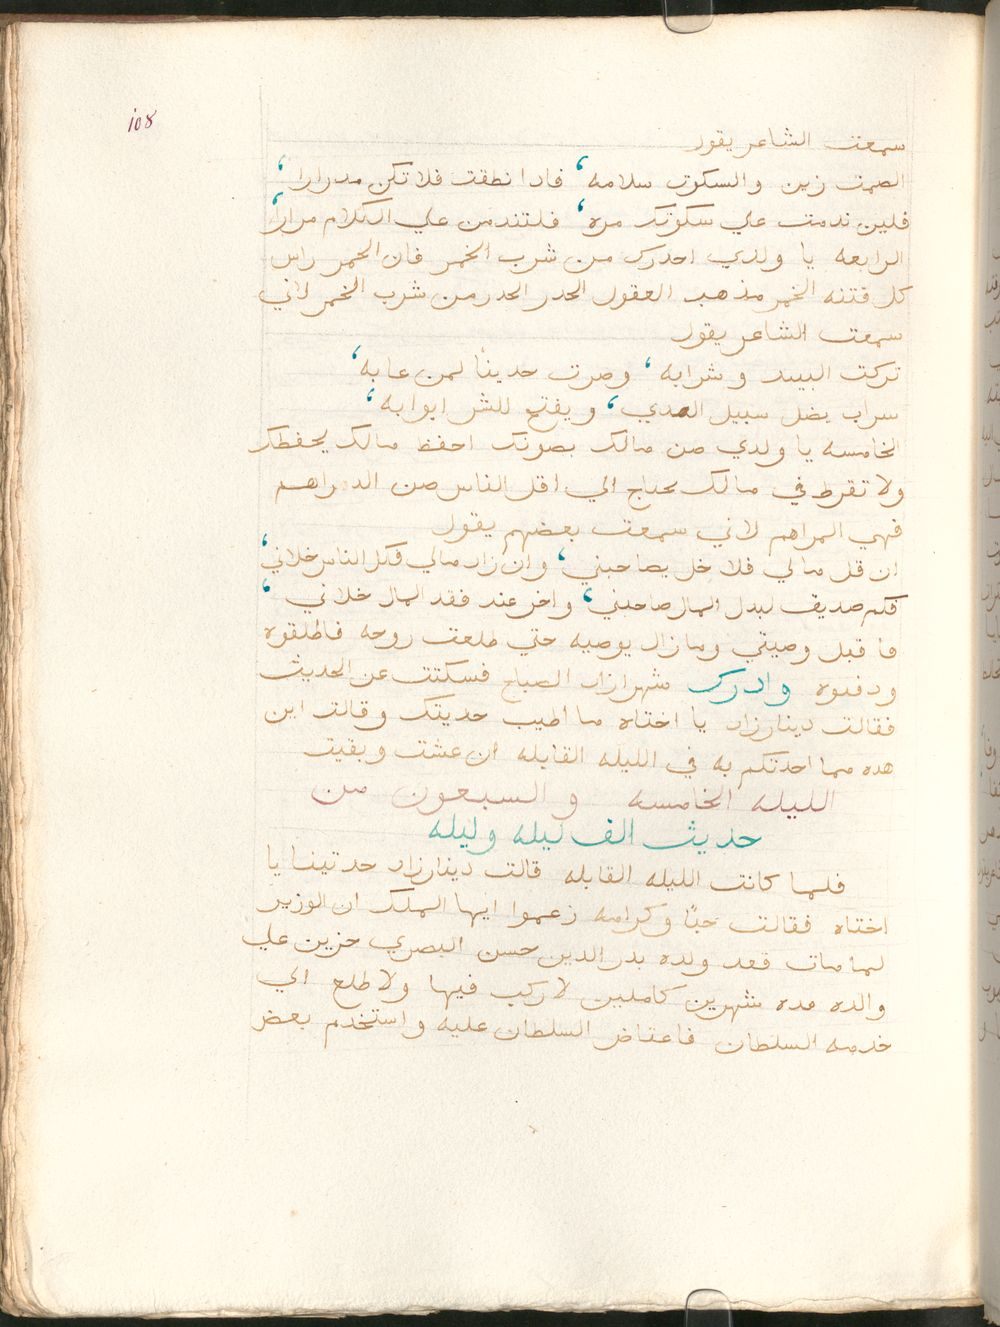 108
سمعت الشاعر يقول
الصمت زين والسكوت سلامه، فادا نطقت فلا تكن مدرارا،
فلين ندمت علي سكوتك مره، فلتندمن علي الكلام مرارا،
الرابعه يا ولدي احدرك من شرب الخمر فان الخمر راس
كل فتنه الخمر مذهب العقول الحدر الحدر من شرب الخمر لاني
سمعت الشاعر يقول
تركت النبيد وشرابه، وصرت حديثا لمن عابه،
سراب يضل سبيل الهدي، ويفتح للشر ابوابه،
الخامسه يا ولدي صن مالك بصونك احفظ مالك يحفظك
ولا تفرط في مالك تحتاج الي اقل الناس صن الدراهم
فهي المراهم لاني سمعت بعضهم يقول
ان قل مالي فلا خل يصاحبني، وان زاد مالي فكل الناس خلاني،
فكم صديق لبدل المال صاحبني، واخر عند فقد المال خلاني،
فاقبل وصيتي وما زال يوصيه حتي طلعت روحه فاطلقوه
ودفنوه وادرك شهرازاد الصباح فسكتت عن الحديث
فقالت دينارزاد يا اختاه ما اطيب حديتك وقالت اين
هده مما احدتكم به في الليله القابله ان عشت وبقيت
الليله الخامسه والسبعون من
حديث الف ليله وليله
فلما كانت الليله القابله قالت دينارزاد حدتينا يا
اختاه فقالت حبًا وكرامه زعموا ايها الملك ان الوزير
لما مات قعد ولده بدر الدين حسن البصري حزين علي
والده مده شهرين كاملين لا ركب فيها ولا طلع الي
خدمه السلطان فاعتاض السلطان عليه واستخدم بعض